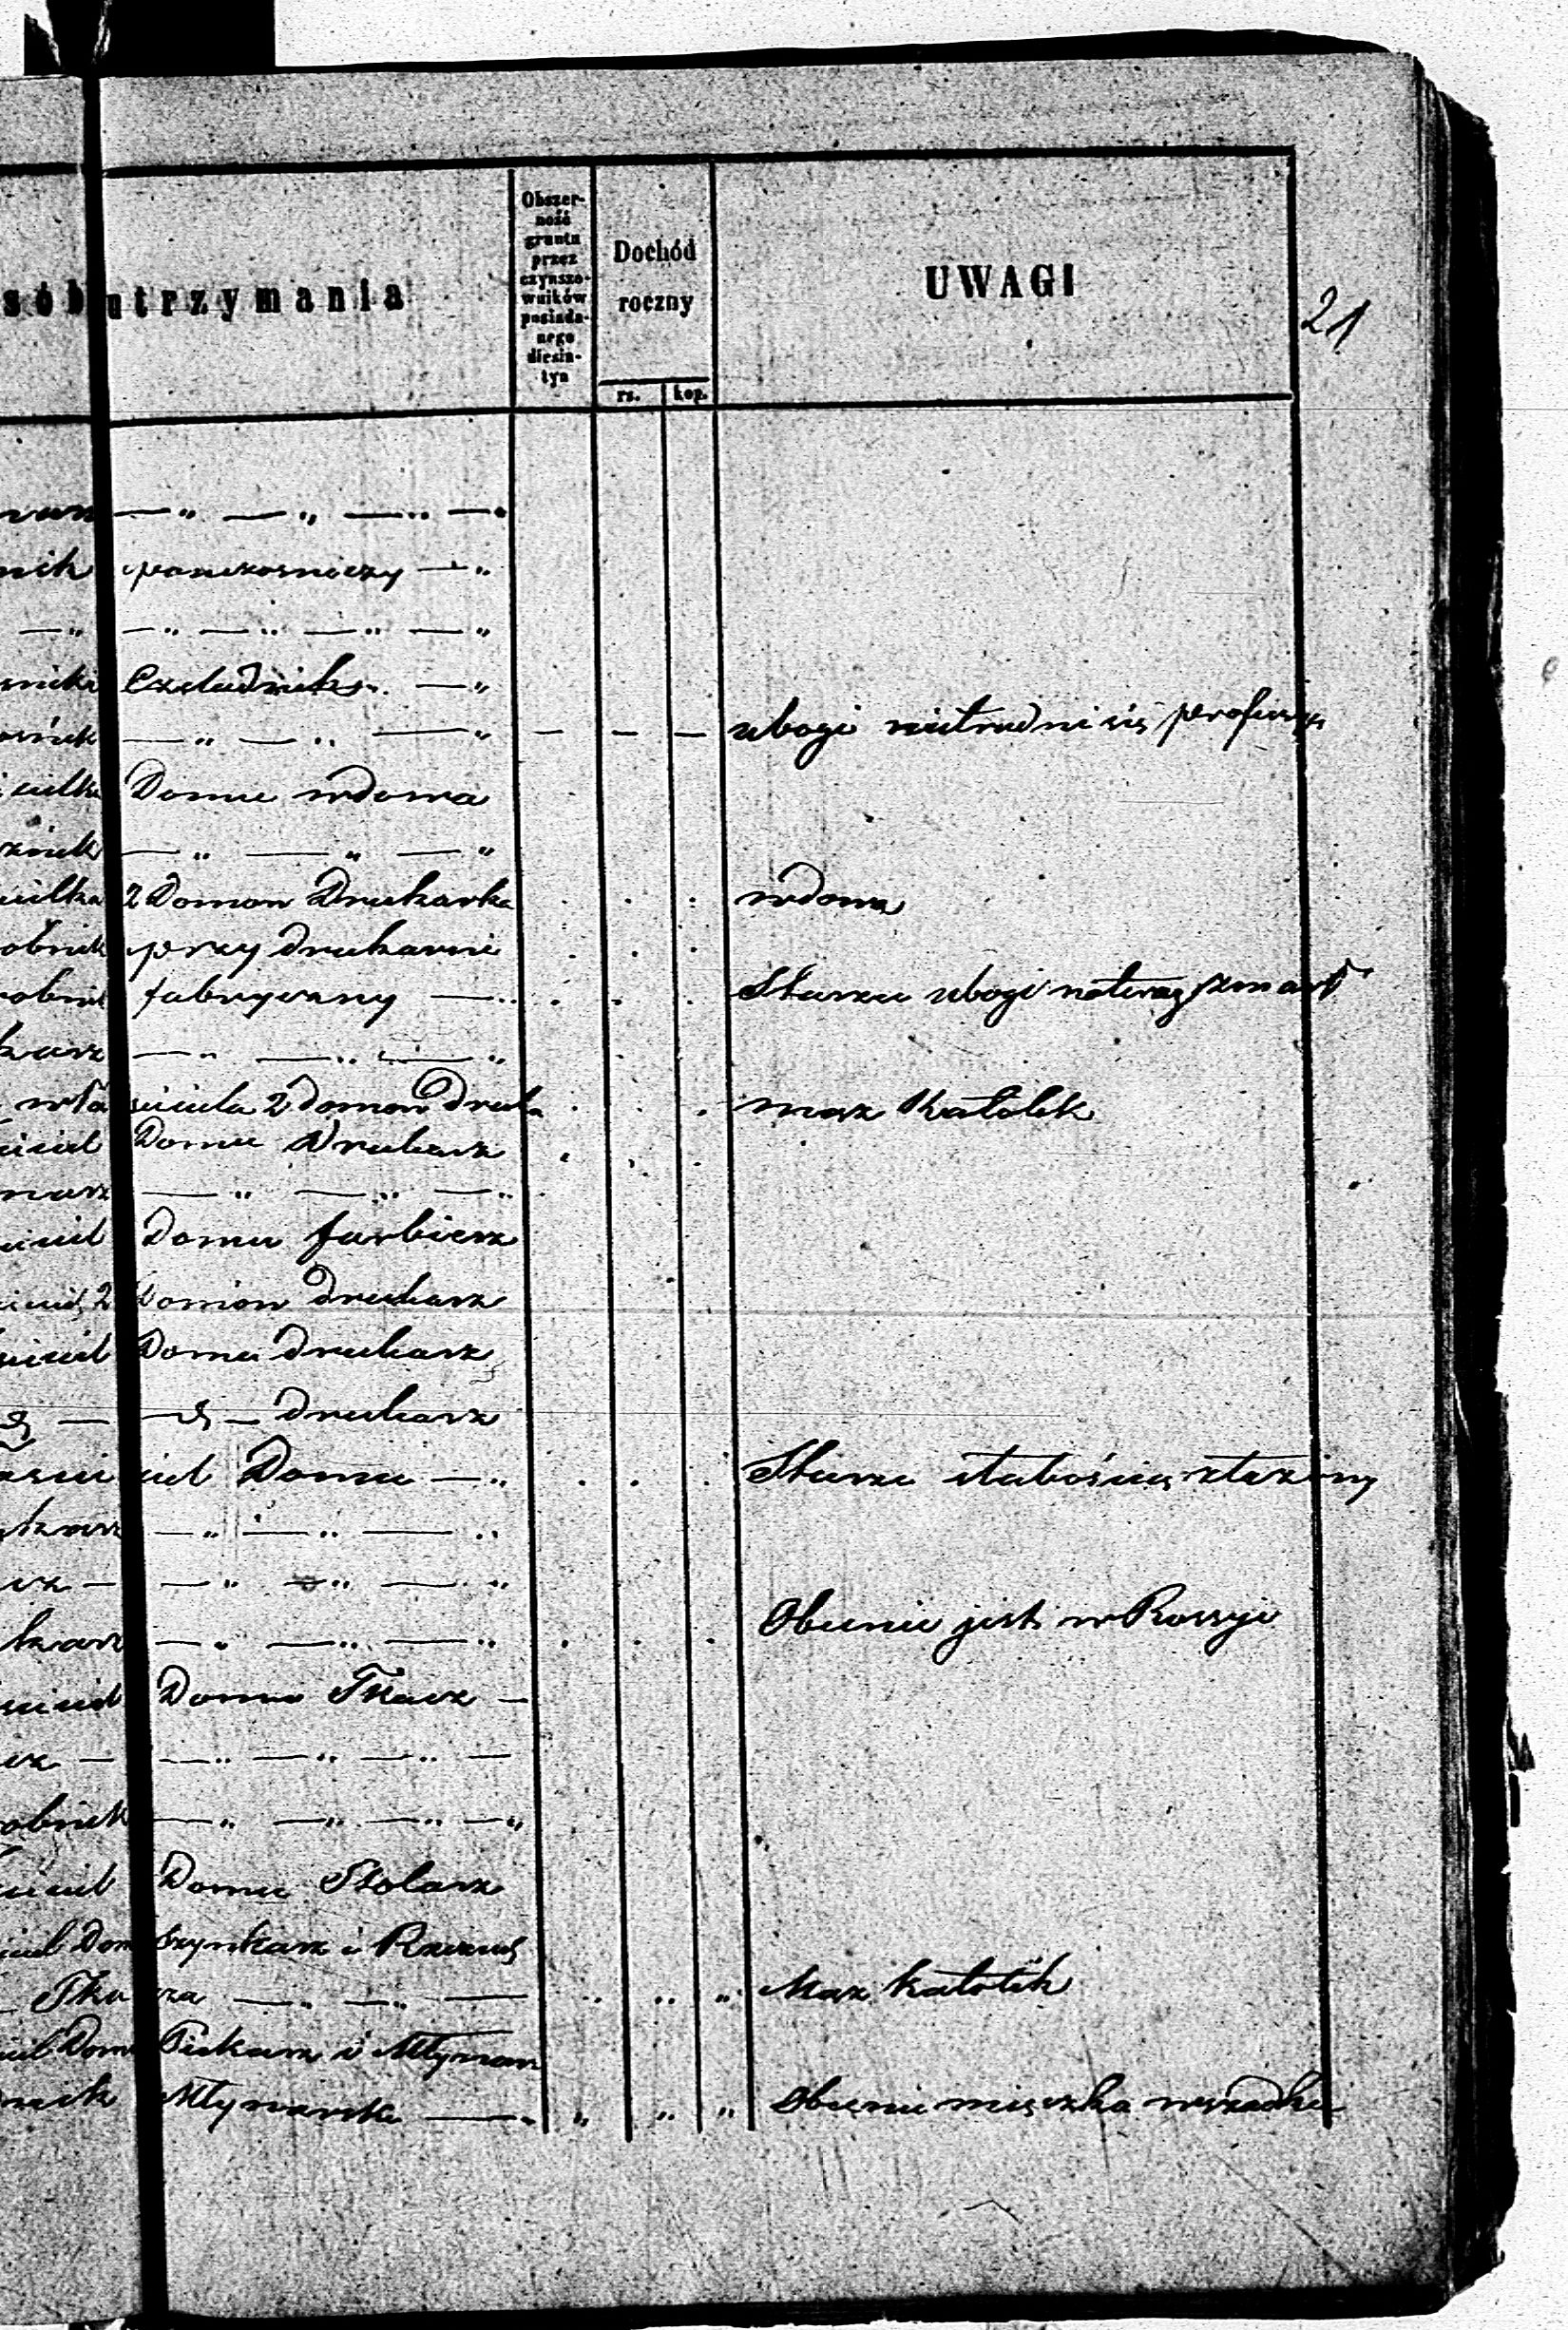 sób utrzymania
Obszer-
ność
gruntu
przez
czynszo-
wników
posiada-
nego
diesia-
tyn
Dochód
roczny
rs. kop.
UWAGI
21
— " — " — " — "
nik ponczoszniczy — "
— " — " — " — " — "
Czeladnik — "
— " — " — " — — — ubogi nietrudni się profesyą
cielka Domu wdowa
— " — " — "
cielka 2 Domow Drukarka wdowa
robnik przy drukarni
robnik fabryczny — " Starzec ubogi zmarł
karz — " — " — "
właściciela 2 domow druka mąz Katolik
ściciel Domu Drukarz
narz — " — " — "
ciciel Domu farbierz
ciciel 2 Domow drukarz
ściciel Domu drukarz
— — drukarz
aściciel Domu — " Starzec słabością złożony
karz — " — " — "
cz — — " — " — "
karz — " — " — " Obecnie jest w Rossyi
ściciel Domu Tkacz —
cz — — " — " — " —
obnik — " — " — " — "
ściciel Domu Stolarz
ciel Dom Szynkarz i Rzeznik
Tkacza — " — " — " " " Mąz katolik
ciel Dom Piekarz i Młynarz
nik Młynarski — " " " " Obecnie mięszka